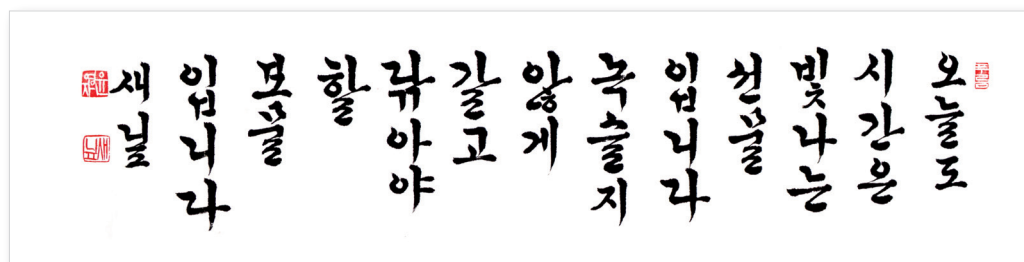 오늘도
시간은
빛나는
선물
입니다
녹슬지
않게
갈고
닦아야
할
보물
입니다